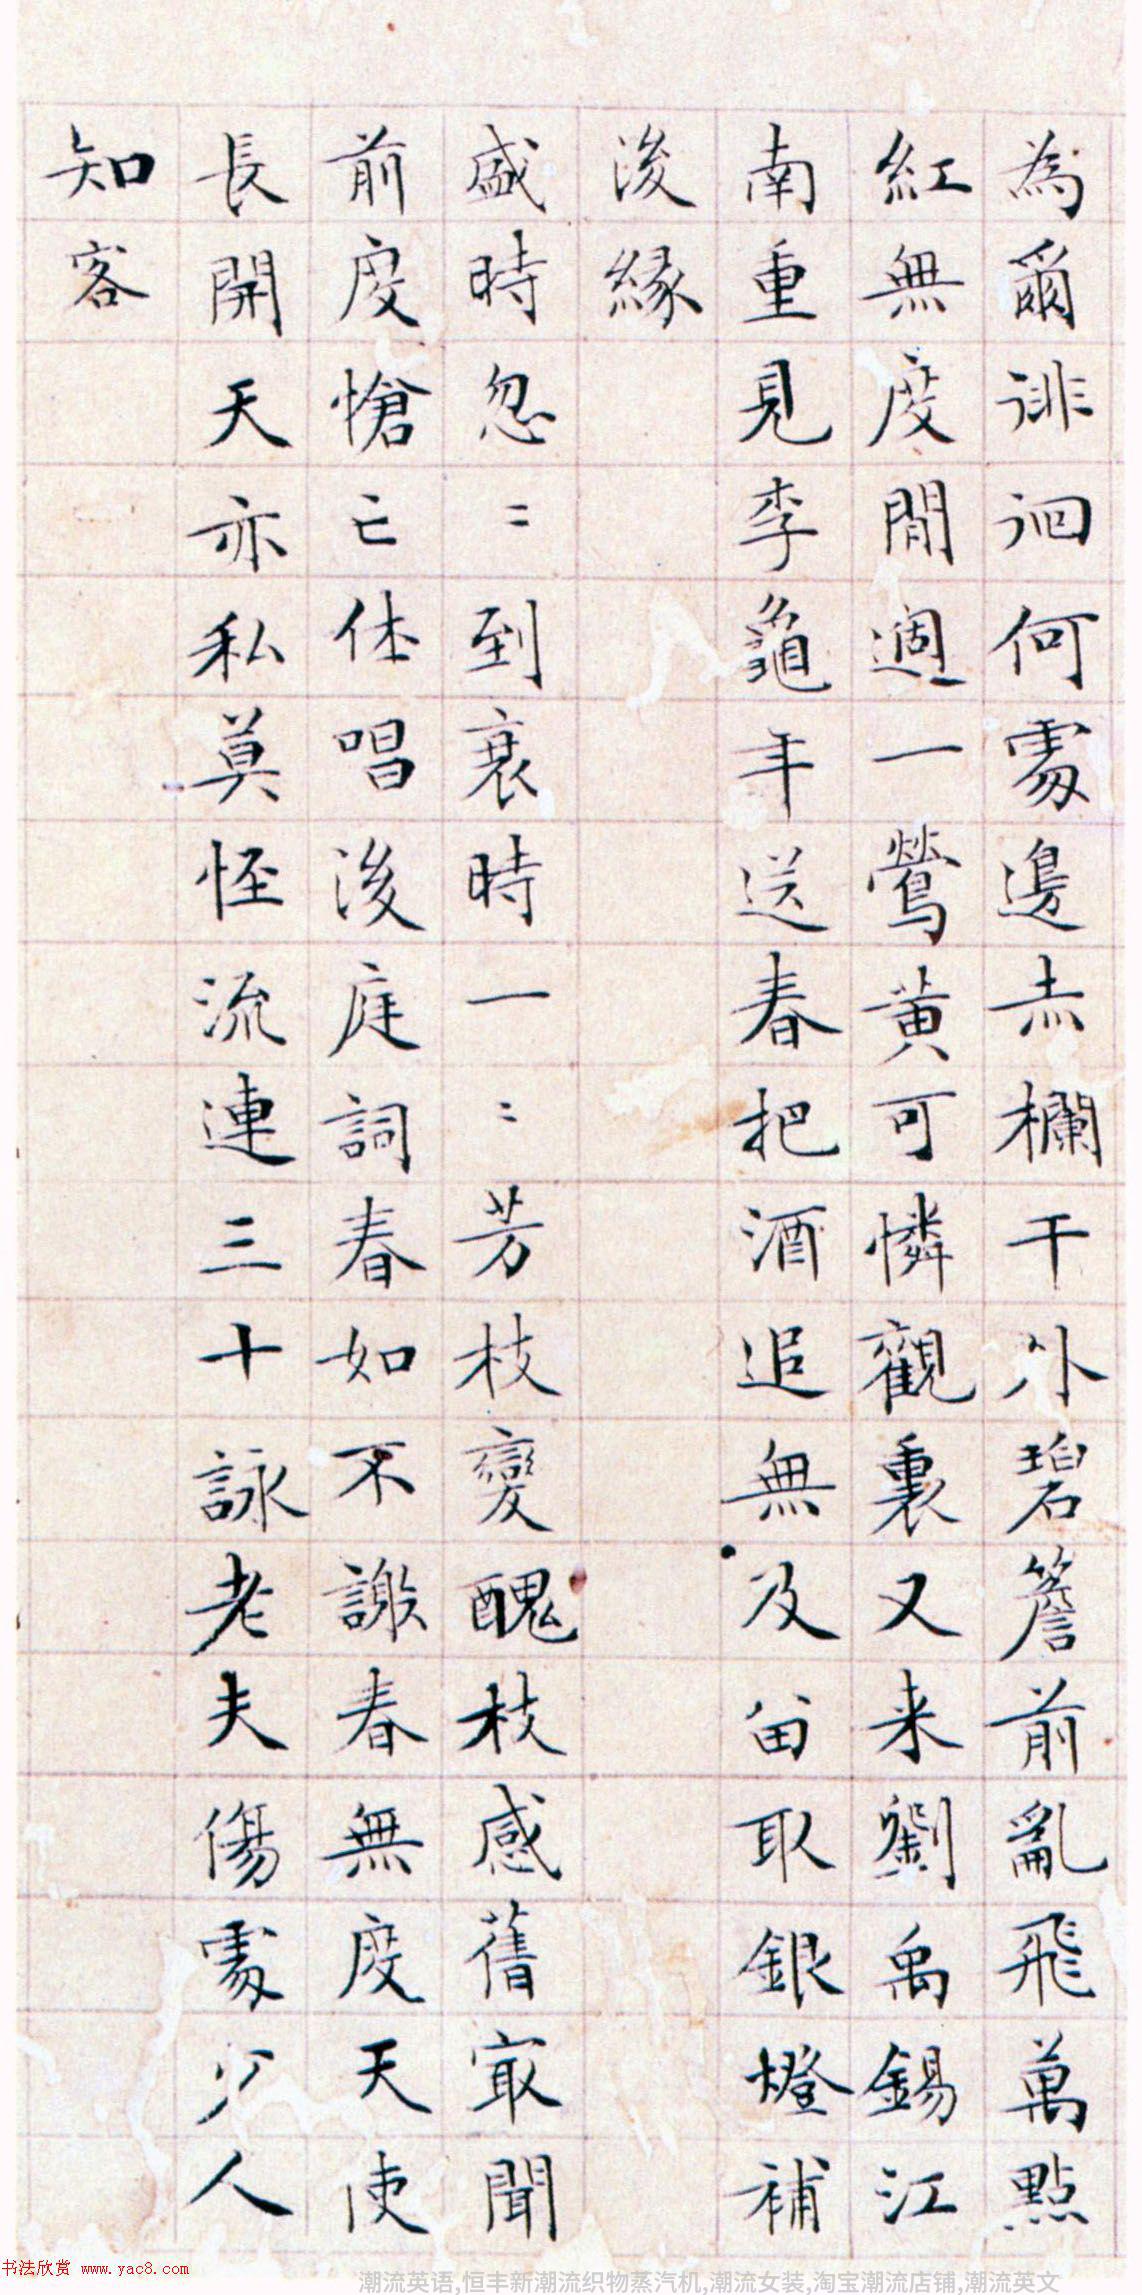 為爾徘徊何處邊赤欄干外碧簷前亂飛萬點
紅無度閒過一鶯黄可憐觀裏又来劉禹錫江
南重見李龜年送春把酒追無及留取銀燈補
後緣
盛時忽〻到衰時一〻芳枝變醜枝感舊最聞
前度愴亡休唱後庭詞春如不謝春無度天使
長開天亦私莫怪流連三十詠老夫傷處少人
知客
书法欣赏 www.yac8.com
潮流英语,恒丰新潮流织物蒸汽机,潮流女装,淘宝潮流店铺,潮流英文